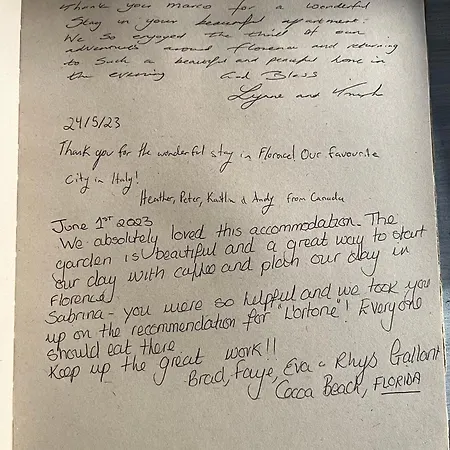 Thank you Marco for a wonderful
Stay in your beautiful apartment.
We so enjoyed the thrill of our
adventures around Florence and returning
to such a beautiful and peaceful home in
the evening God Bless
Lynne and
24/5/23
Thank you for the wonderful stay in Florence! Our favourite
City in Italy!
Heather, Peter, Kaitlin & Andy from Canada
June 1st 2023
We absolutely loved this accommodation. The
garden is beautiful and a great way to start
our day with coffee and plan our day in
Florence
Sabrina - you were so helpful and we took you
up on the recommendation for "L'ortone"! Everyone
should eat there
Keep up the great work!!
Brad, Faye, Eva & Rhys Gallant
Cocoa Beach, FLORIDA